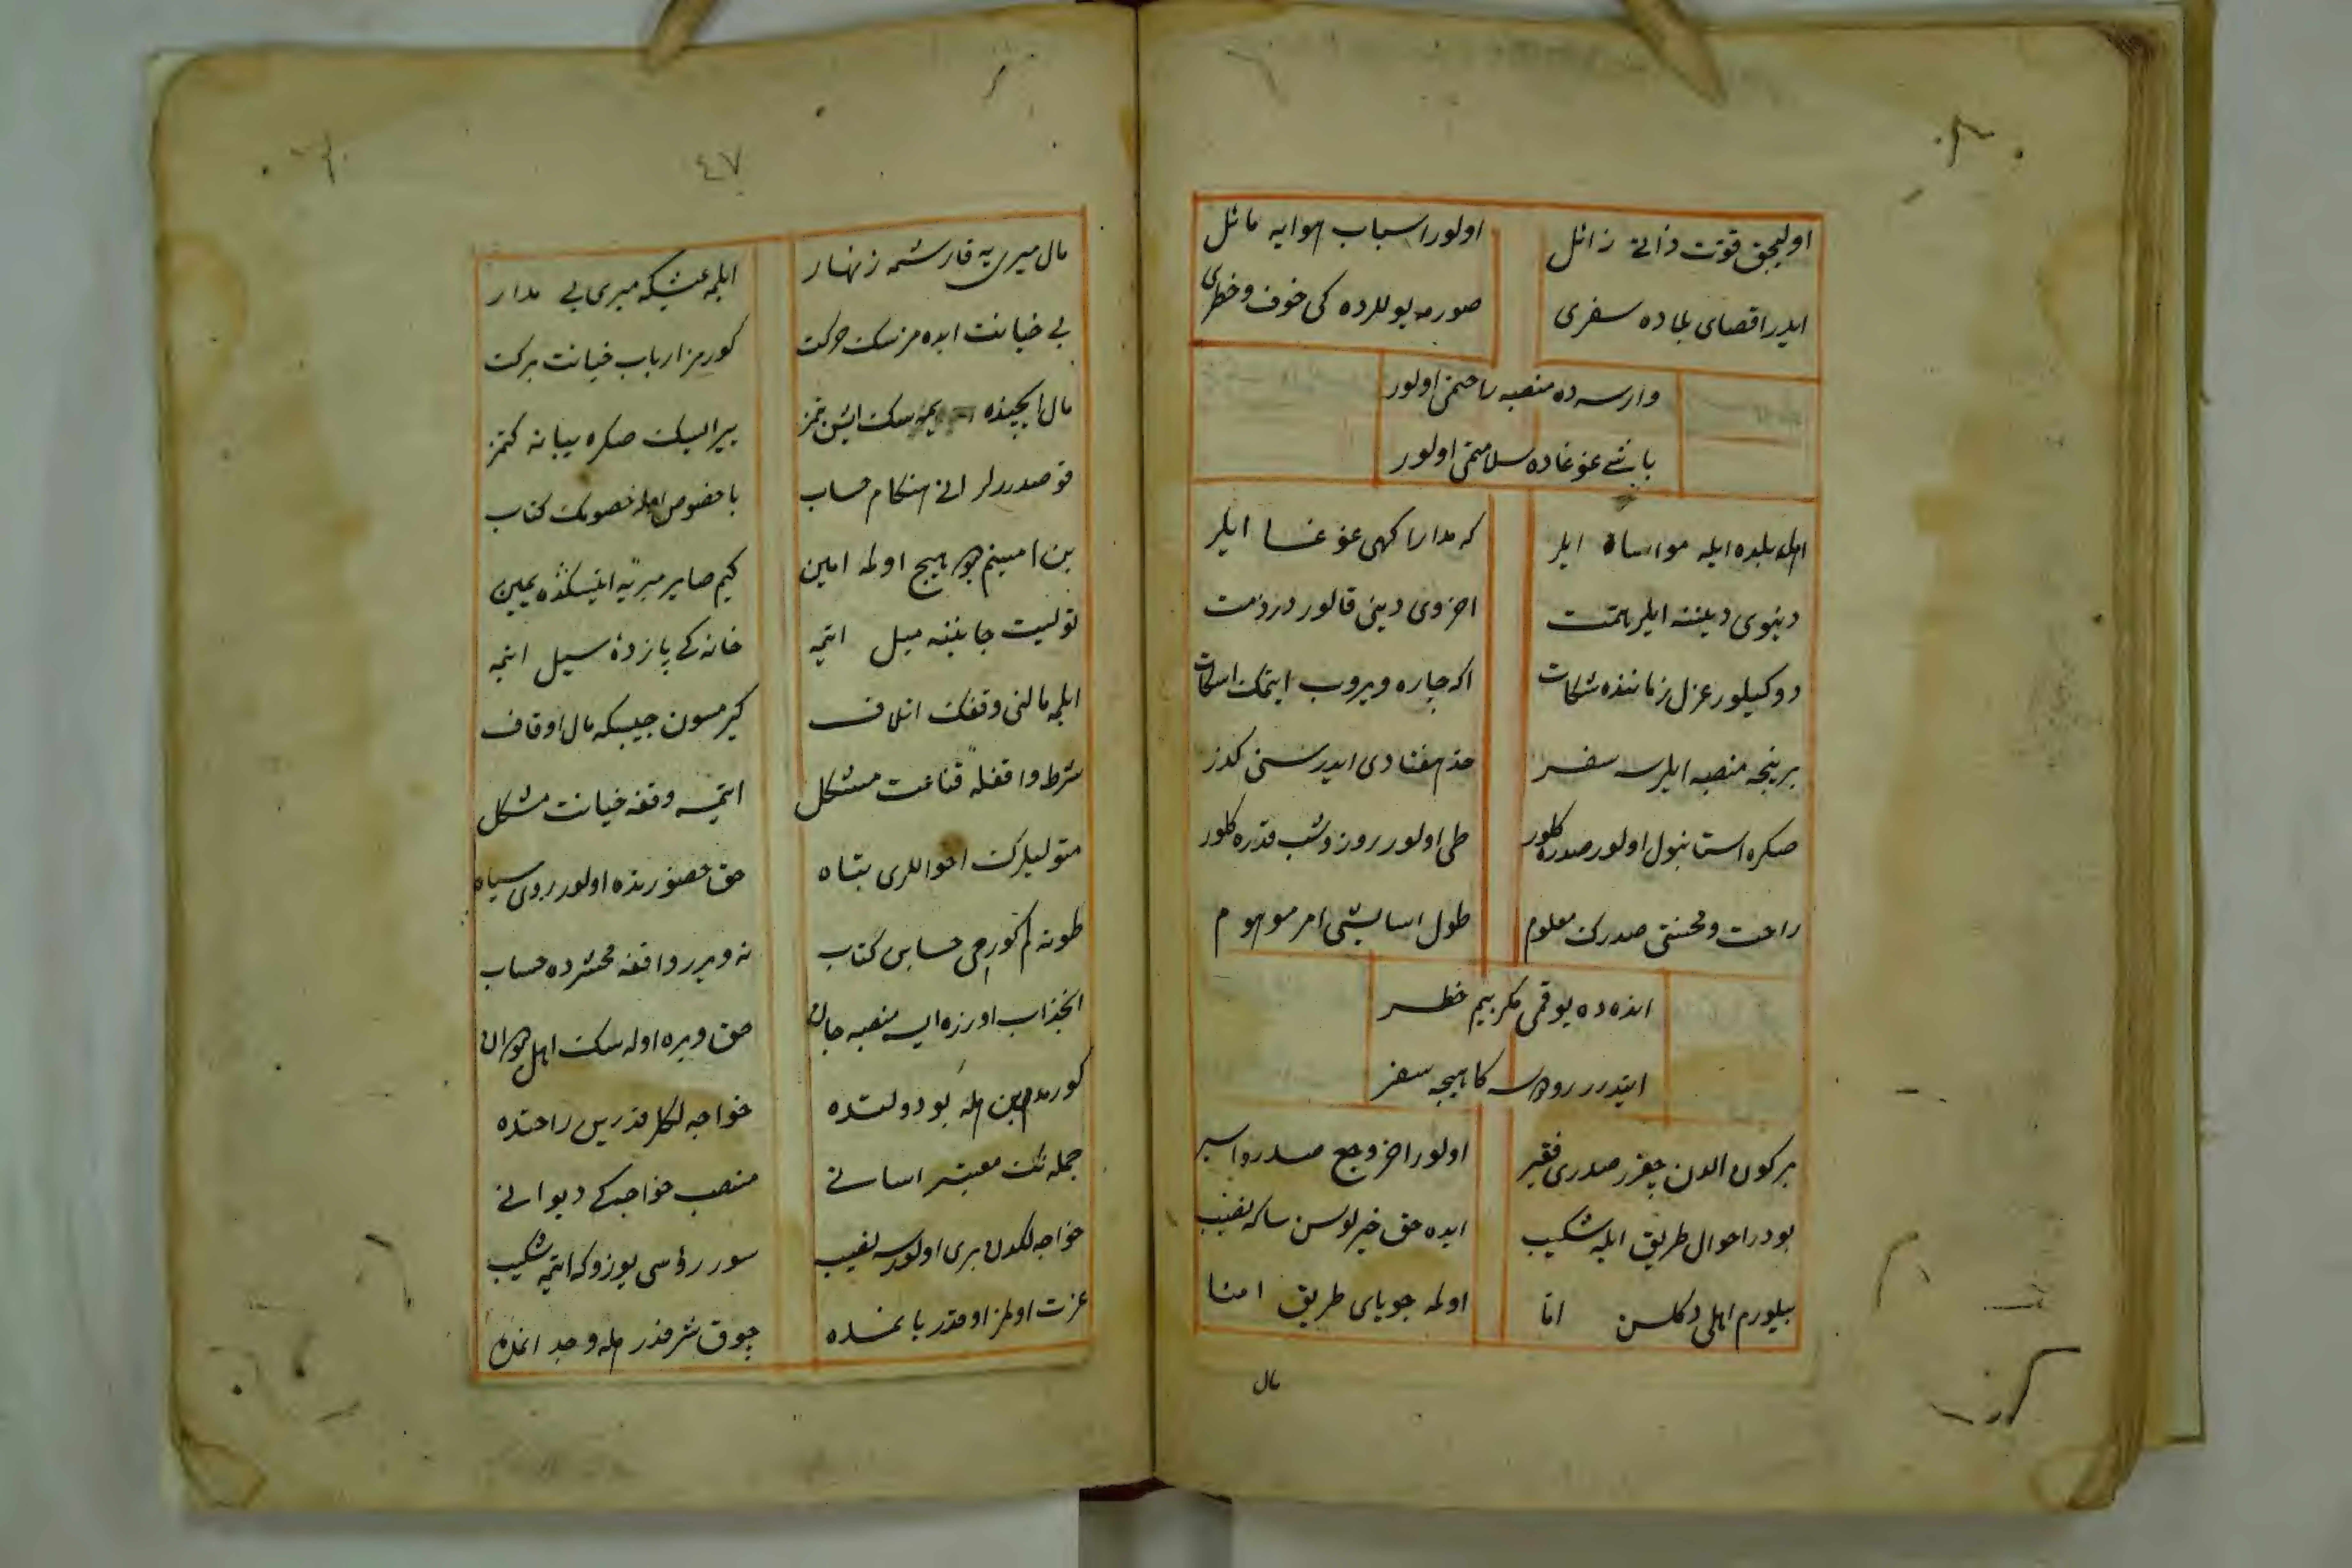 اولیجق قوت ذاتی زائل
اولور اسباب هوایه مائل
ایدر اقصای بلاده سفری
صورمه یوللرده کی خوف و خطری
وارسه ده منصبه راحتمی اولور
باشی غوغاده سلامتمی اولور
اهل بلده ایله مواساة ایلر
که مدارا کهی غوغا ایلر
دنیوی دیننه ایلر همت
اخروی دینی قالور در ذمت
دوکیلور عزل زماننده شکات
اکه چاره ویروب ایتمک اسکات
بر نیجه منصبه ایلرسه سفر
حد هفتادی ایدر سنی کذر
صکره استانبول اولور صدره کلور
طی اولور روز و شب قدره کلور
راحت و محنتی صدرک معلوم
طول اسایشی امر موهوم
انده ده یوقمی مکر بیم خطر
ایتدرر رودسه کاهیجه سفر
هر کون الدن چقر صدری فقیر
اولور اخر وجع صدر و اسیر
بودر احوال طریق ایله شکیب
ایده حق خیرلوسن ساکه نصیب
بیلورم اهلی دکلسن اما
اولمه جویای طریق امنا
مال
٤٧
مال میری یه قارشمه زنهار
ایلمه عیشکه میری یی مدار
بی خیانت ایده مزسک حرکت
کورمز ارباب خیانت برکت
مال ایچنده یمزسک ایش بتمز
یر ایسک صکره یبانه کتمز
قو صدرلر انی هنکام حساب
با خصوص اهل خصومک کتاب
بن امینم دیو هیچ اولمه امین
کیم صایر میریه ایتسکده یمین
تولیت جاننه میل ایتمه
خانه کی یازده سیل ایتمه
ایلمه مالنی وقفک اتلاف
کیرمسون جیبکه مال اوقاف
شرط واقفله قناعت مشکل
ایتمسه وقفه خیانت مشکل
متولیلرک احواللری تباه
حق حضورنده اولور روی سیاه
طوته لم کوردی حسابن کتاب
نه ویرر واقفه محشرده حساب
انجذاب اوزره ایسه منصبه جان
حق ویره اوله سک اهل دیوان
کورمدم بن هله بو دولتده
خواجه لکلر قدریس راحتده
جمله نک معتبر اسانی
منصب خواجه کی دیوانی
خواجه لکدن بری اولورسه نصیب
سور رؤسی یوزوکه ایتمه شکیب
عزت اولمز او قدر یا نمده
چوق شرفدر هله وجد انمده